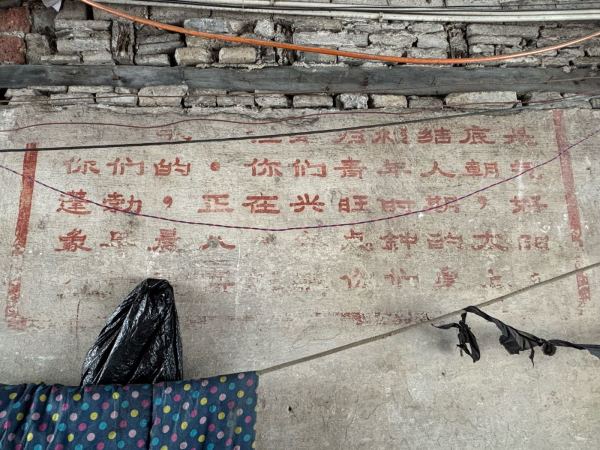 归根结底是
你们的。你们青年人朝气
蓬勃，正在兴旺时期，好
象早晨八点钟的太阳
你们身上